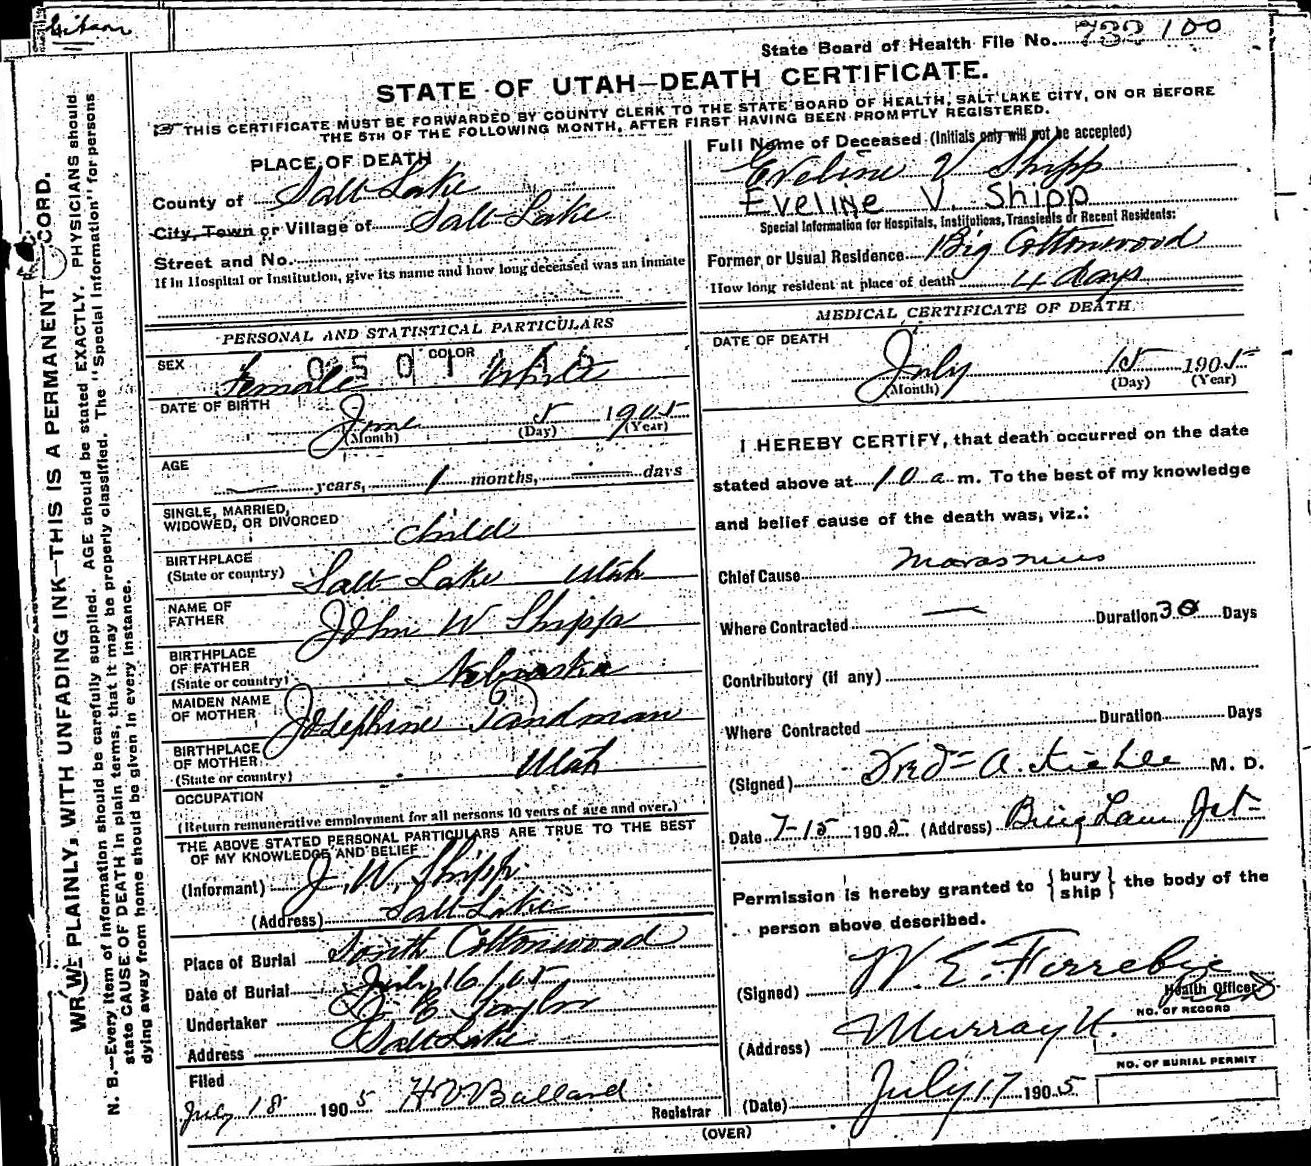 State Board of Health File No. 732 100
STATE OF UTAH—DEATH CERTIFICATE.
THIS CERTIFICATE MUST BE FORWARDED BY COUNTY CLERK TO THE STATE BOARD OF HEALTH, SALT LAKE CITY, ON OR BEFORE
THE 5TH OF THE FOLLOWING MONTH, AFTER FIRST HAVING BEEN PROMPTLY REGISTERED.
WRITE PLAINLY, WITH UNFADING INK—THIS IS A PERMANENT RECORD.
N. B.—Every item of information should be carefully supplied. AGE should be stated EXACTLY. PHYSICIANS should
state CAUSE OF DEATH in plain terms, that it may be properly classified. The "Special Information" for persons
dying away from home should be given in every instance.
PLACE OF DEATH
County of Salt Lake
City, Town or Village of Salt Lake
Street and No.
If in Hospital or Institution, give its name and how long deceased was an inmate
PERSONAL AND STATISTICAL PARTICULARS
SEX Female COLOR White
DATE OF BIRTH June 5 1905
(Month) (Day) (Year)
AGE — years, 1 months, — days
SINGLE, MARRIED,
WIDOWED, OR DIVORCED child
BIRTHPLACE
(State or country) Salt Lake Utah
NAME OF
FATHER John W Shipp
BIRTHPLACE
OF FATHER
(State or country) Nebraska
MAIDEN NAME
OF MOTHER Josephine Tandman
BIRTHPLACE
OF MOTHER
(State or country) Utah
OCCUPATION
(Return remunerative employment for all persons 10 years of age and over.)
THE ABOVE STATED PERSONAL PARTICULARS ARE TRUE TO THE BEST
OF MY KNOWLEDGE AND BELIEF
(Informant) J. W. Shipp
(Address) Salt Lake
Place of Burial South Cottonwood
Date of Burial July 16/05
Undertaker E Taylor
Address Salt Lake
Filed
July 18 1905 Ballard
Registrar
Full Name of Deceased (Initials only will not be accepted)
Eveline V Shipp
Eveline V. Shipp
Special Information for Hospitals, Institutions, Transients or Recent Residents:
Former or Usual Residence Big Cottonwood
How long resident at place of death 4 days
MEDICAL CERTIFICATE OF DEATH
DATE OF DEATH
July 15 1905
(Month) (Day) (Year)
I HEREBY CERTIFY, that death occurred on the date
stated above at 10 a m. To the best of my knowledge
and belief cause of the death was, viz.:
Chief Cause Marasmus
Where Contracted — Duration 30 Days
Contributory (if any)
Where Contracted Duration Days
(Signed) A. Kiehle M. D.
Date 7-15 1905 (Address) Bingham Jct
Permission is hereby granted to { bury ship } the body of the
person above described.
(Signed) W. E. Ferrebie
Health Officer
(Address) Murray U.
NO. OF RECORD
NO. OF BURIAL PERMIT
(Date) July 17 1905
(OVER)